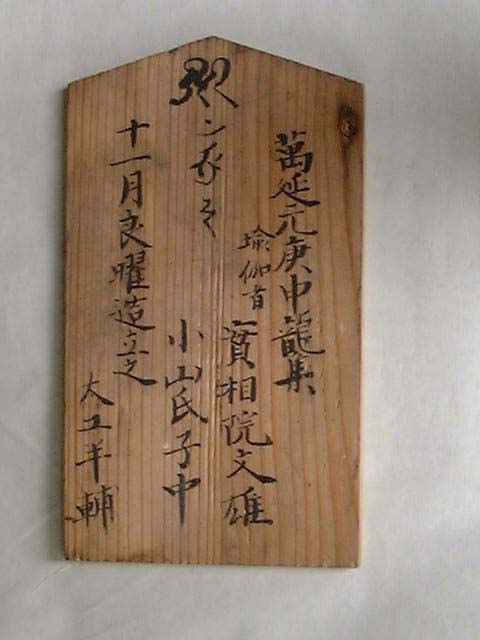 萬延元庚申龍集
瑜伽者
實相院文雄
小山氏子中
十一月良曜造立之
大工半輔